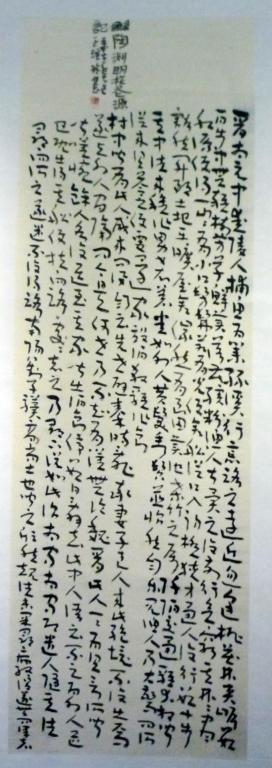 晉太元中武陵人捕魚為業緣溪行忘路之遠近忽逢桃花林夾岸數
百步中無雜樹芳草鮮美落英繽紛漁人甚異之復前行欲窮其林林盡
水源便得一山山有小口仿佛若有光便舍船從口入初極狹才通人復行數十步
豁然開朗土地平曠屋舍儼然有良田美池桑竹之屬阡陌交通雞犬相聞
其中往來種作男女衣著悉如外人黃髮垂髫並怡然自樂見漁人乃大驚問所
從來具答之便要還家設酒殺雞作食
村中聞有此人咸來問訊自云先世避秦時亂率妻子邑人來此絕境不復出焉
遂與外人間隔問今是何世乃不知有漢無論魏晉此人一一為具言所聞
皆嘆惋餘人各復延至其家皆出酒食停數日辭去此中人語云不足為外人道
也既出得其船便扶向路處處誌之及郡下詣太守說如此太守即遣人隨其往
尋向所誌遂迷不復得路南陽劉子驥高尚士也聞之欣然規往未果尋病終後遂無問津者
陶淵明桃花源
記